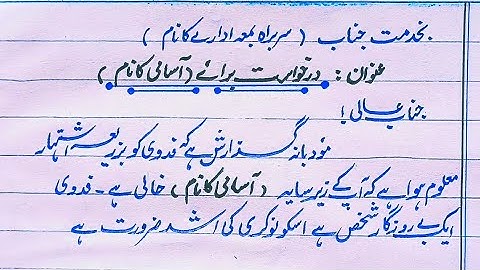 بخدمت جناب ( سربراہ بمعہ ادارے کا نام )
عنوان : درخواست برائے ( آسامی کا نام )
جناب عالی !
مؤدبانہ گذارش ہے کہ فدوی کو بذریعہ اشتہار
معلوم ہوا ہے کہ آپ کے زیر سایہ ( آسامی کا نام ) خالی ہے ۔ فدوی
ایک بے روزگار شخص ہے اسکو نوکری کی اشد ضرورت ہے